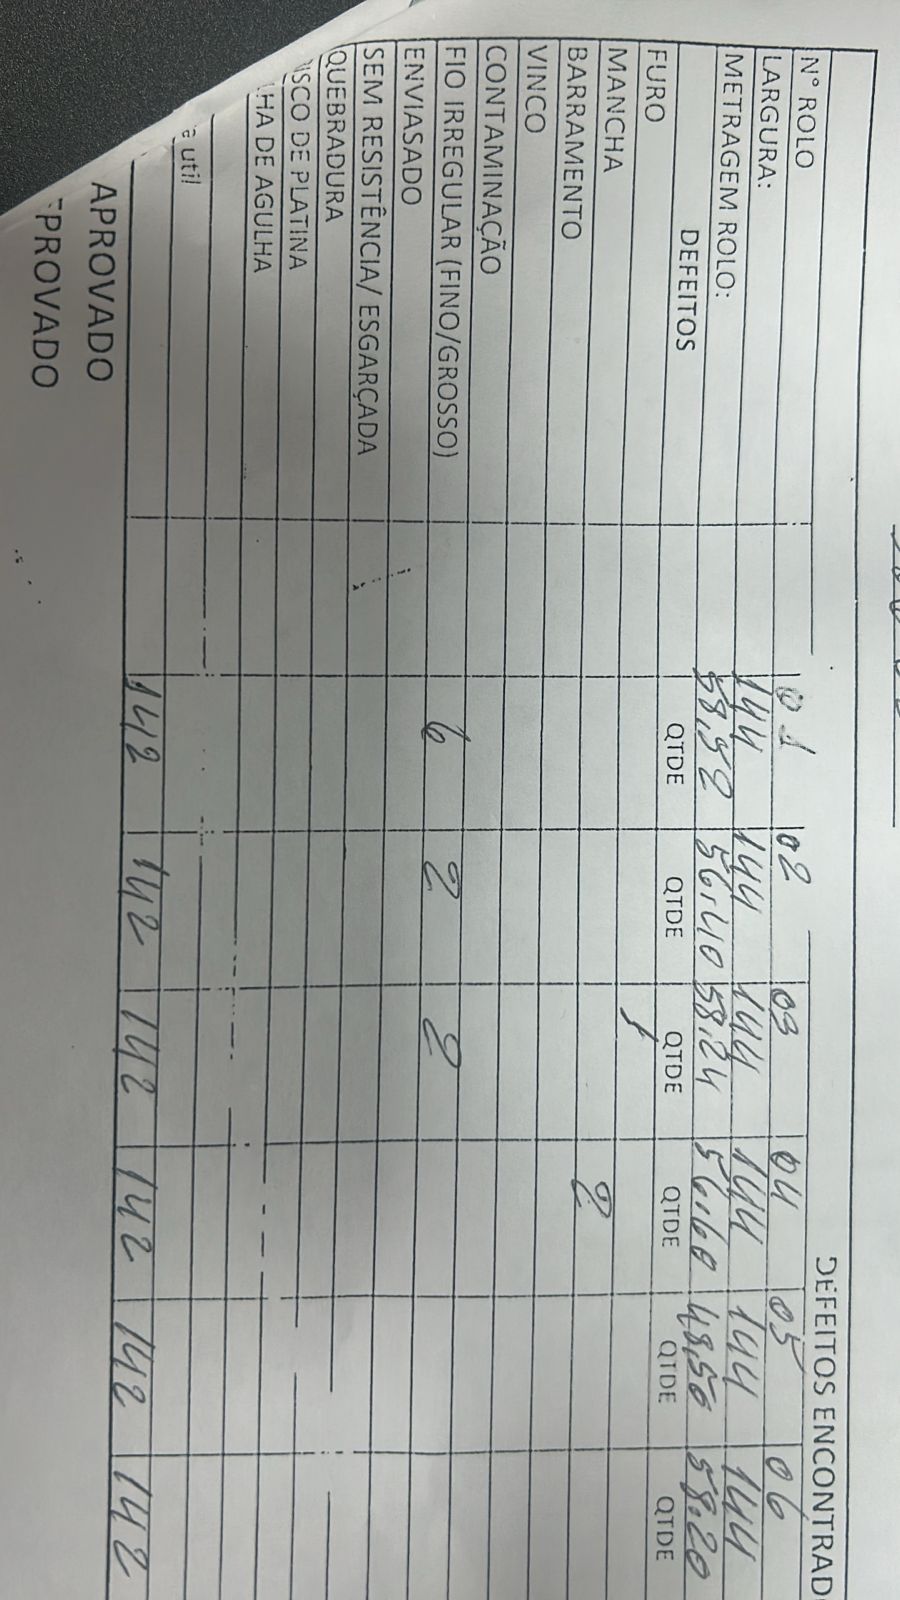 DEFEITOS ENCONTRAD
N° ROLO 01 02 03 04 05 06
LARGURA: 144 144 144 144 144 144
METRAGEM ROLO: 58,92 56.40 58.24 56.60 48,56 58.20
DEFEITOS QTDE QTDE QTDE QTDE QTDE QTDE
FURO 1
MANCHA
BARRAMENTO 2
VINCO
CONTAMINAÇÃO
FIO IRREGULAR (FINO/GROSSO) 6 2 2
ENVIASADO
SEM RESISTÊNCIA/ ESGARÇADA
QUEBRADURA
ISCO DE PLATINA
LHA DE AGULHA
e util 142 142 142 142 142 142
APROVADO
EPROVADO